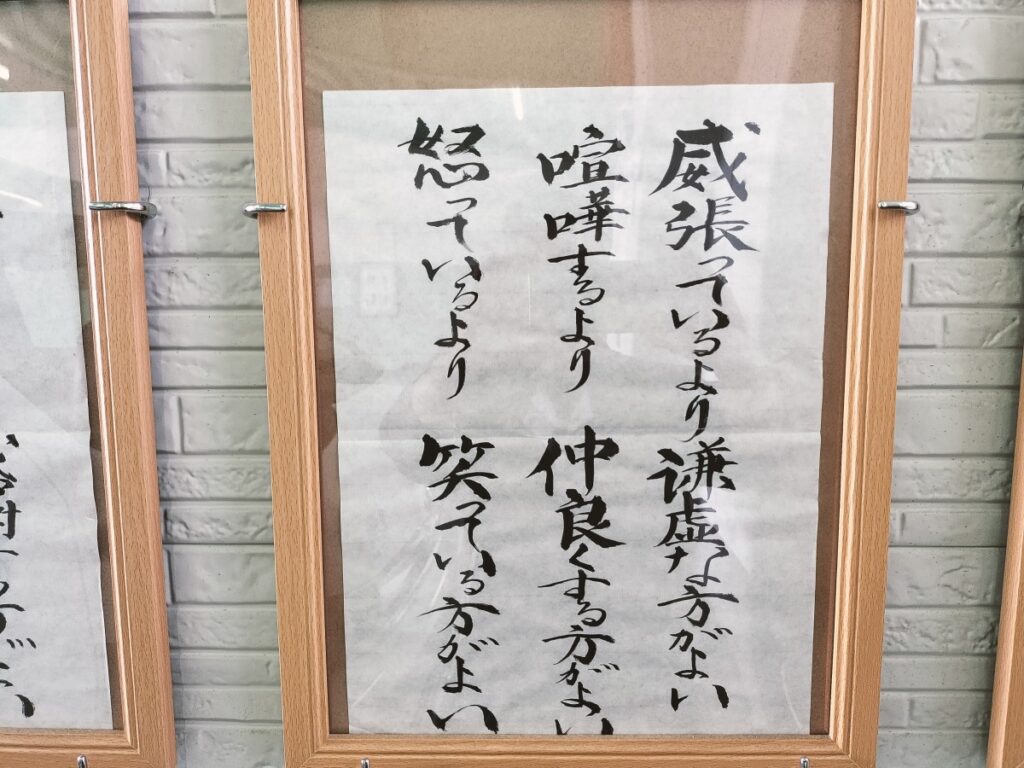 威張っているより謙虚な方がよい
喧嘩するより仲良くする方がよい
怒っているより笑っている方がよい
感謝する方がよい